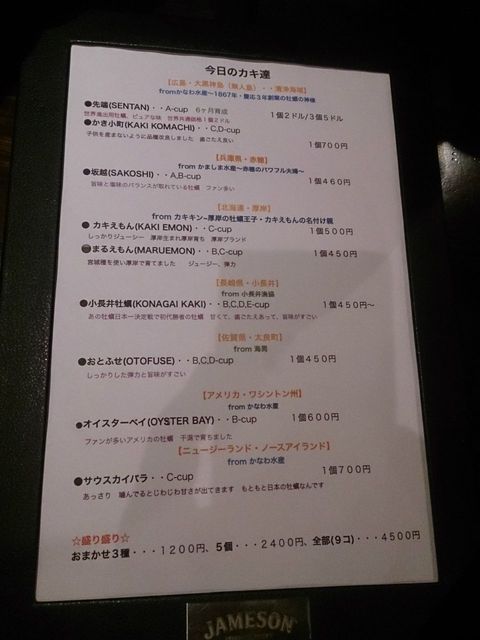 今日のカキ達
【広島・大黒神島（無人島）・・清浄海域】
fromかなわ水産～1867年・慶応3年創業の牡蠣の神様
●先端(SENTAN)・・A-cup 6ヶ月育成
世界進出用牡蠣、ピュアな味 世界共通価格1個2ドル
1個2ドル/3個5ドル
●かき小町(KAKI KOMACHI)・・C,D-cup
子供を産まないように品種改良しました 歯ごたえ良い
1個700円
【兵庫県・赤穂】
from かましま水産～赤穂のパワフル夫婦～
●坂越(SAKOSHI)・・A,B-cup
1個460円
旨味と塩味のバランスが取れている牡蠣 ファン多い
【北海道・厚岸】
from カキキン~厚岸の牡蠣王子・カキえもんの名付け親
●カキえもん(KAKI EMON)・・C-cup
1個500円
しっかりジューシー 厚岸生まれ厚岸育ち 厚岸ブランド
●まるえもん(MARUEMON)・・B,C-cup
1個450円
宮城種を使い厚岸で育てました ジューシー、弾力
【長崎県・小長井】
from 小長井漁協
●小長井牡蠣(KONAGAI KAKI)・・B,C,D,E-cup
1個450円～
あの牡蠣日本一決定戦で初代勝者の牡蠣 甘くて、歯ごたえあって、旨味がすごい
【佐賀県・太良町】
from 海男
●おとふせ(OTOFUSE)・・B,C,D-cup
1個450円
しっかりした弾力と旨味がすごい
【アメリカ・ワシントン州】
from かなわ水産
●オイスターベイ(OYSTER BAY)・・B-cup
1個600円
ファンが多いアメリカの牡蠣 干潟で育ちました
【ニュージーランド・ノースアイランド】
from かなわ水産
●サウスカイパラ・・C-cup
1個700円
あっさり 噛んでるとじわじわ甘さが出てきます もともと日本の牡蠣なんです
☆盛り盛り☆
おまかせ3種・・・1200円、5個・・・2400円、全部(9コ)・・・4500円
JAMESON